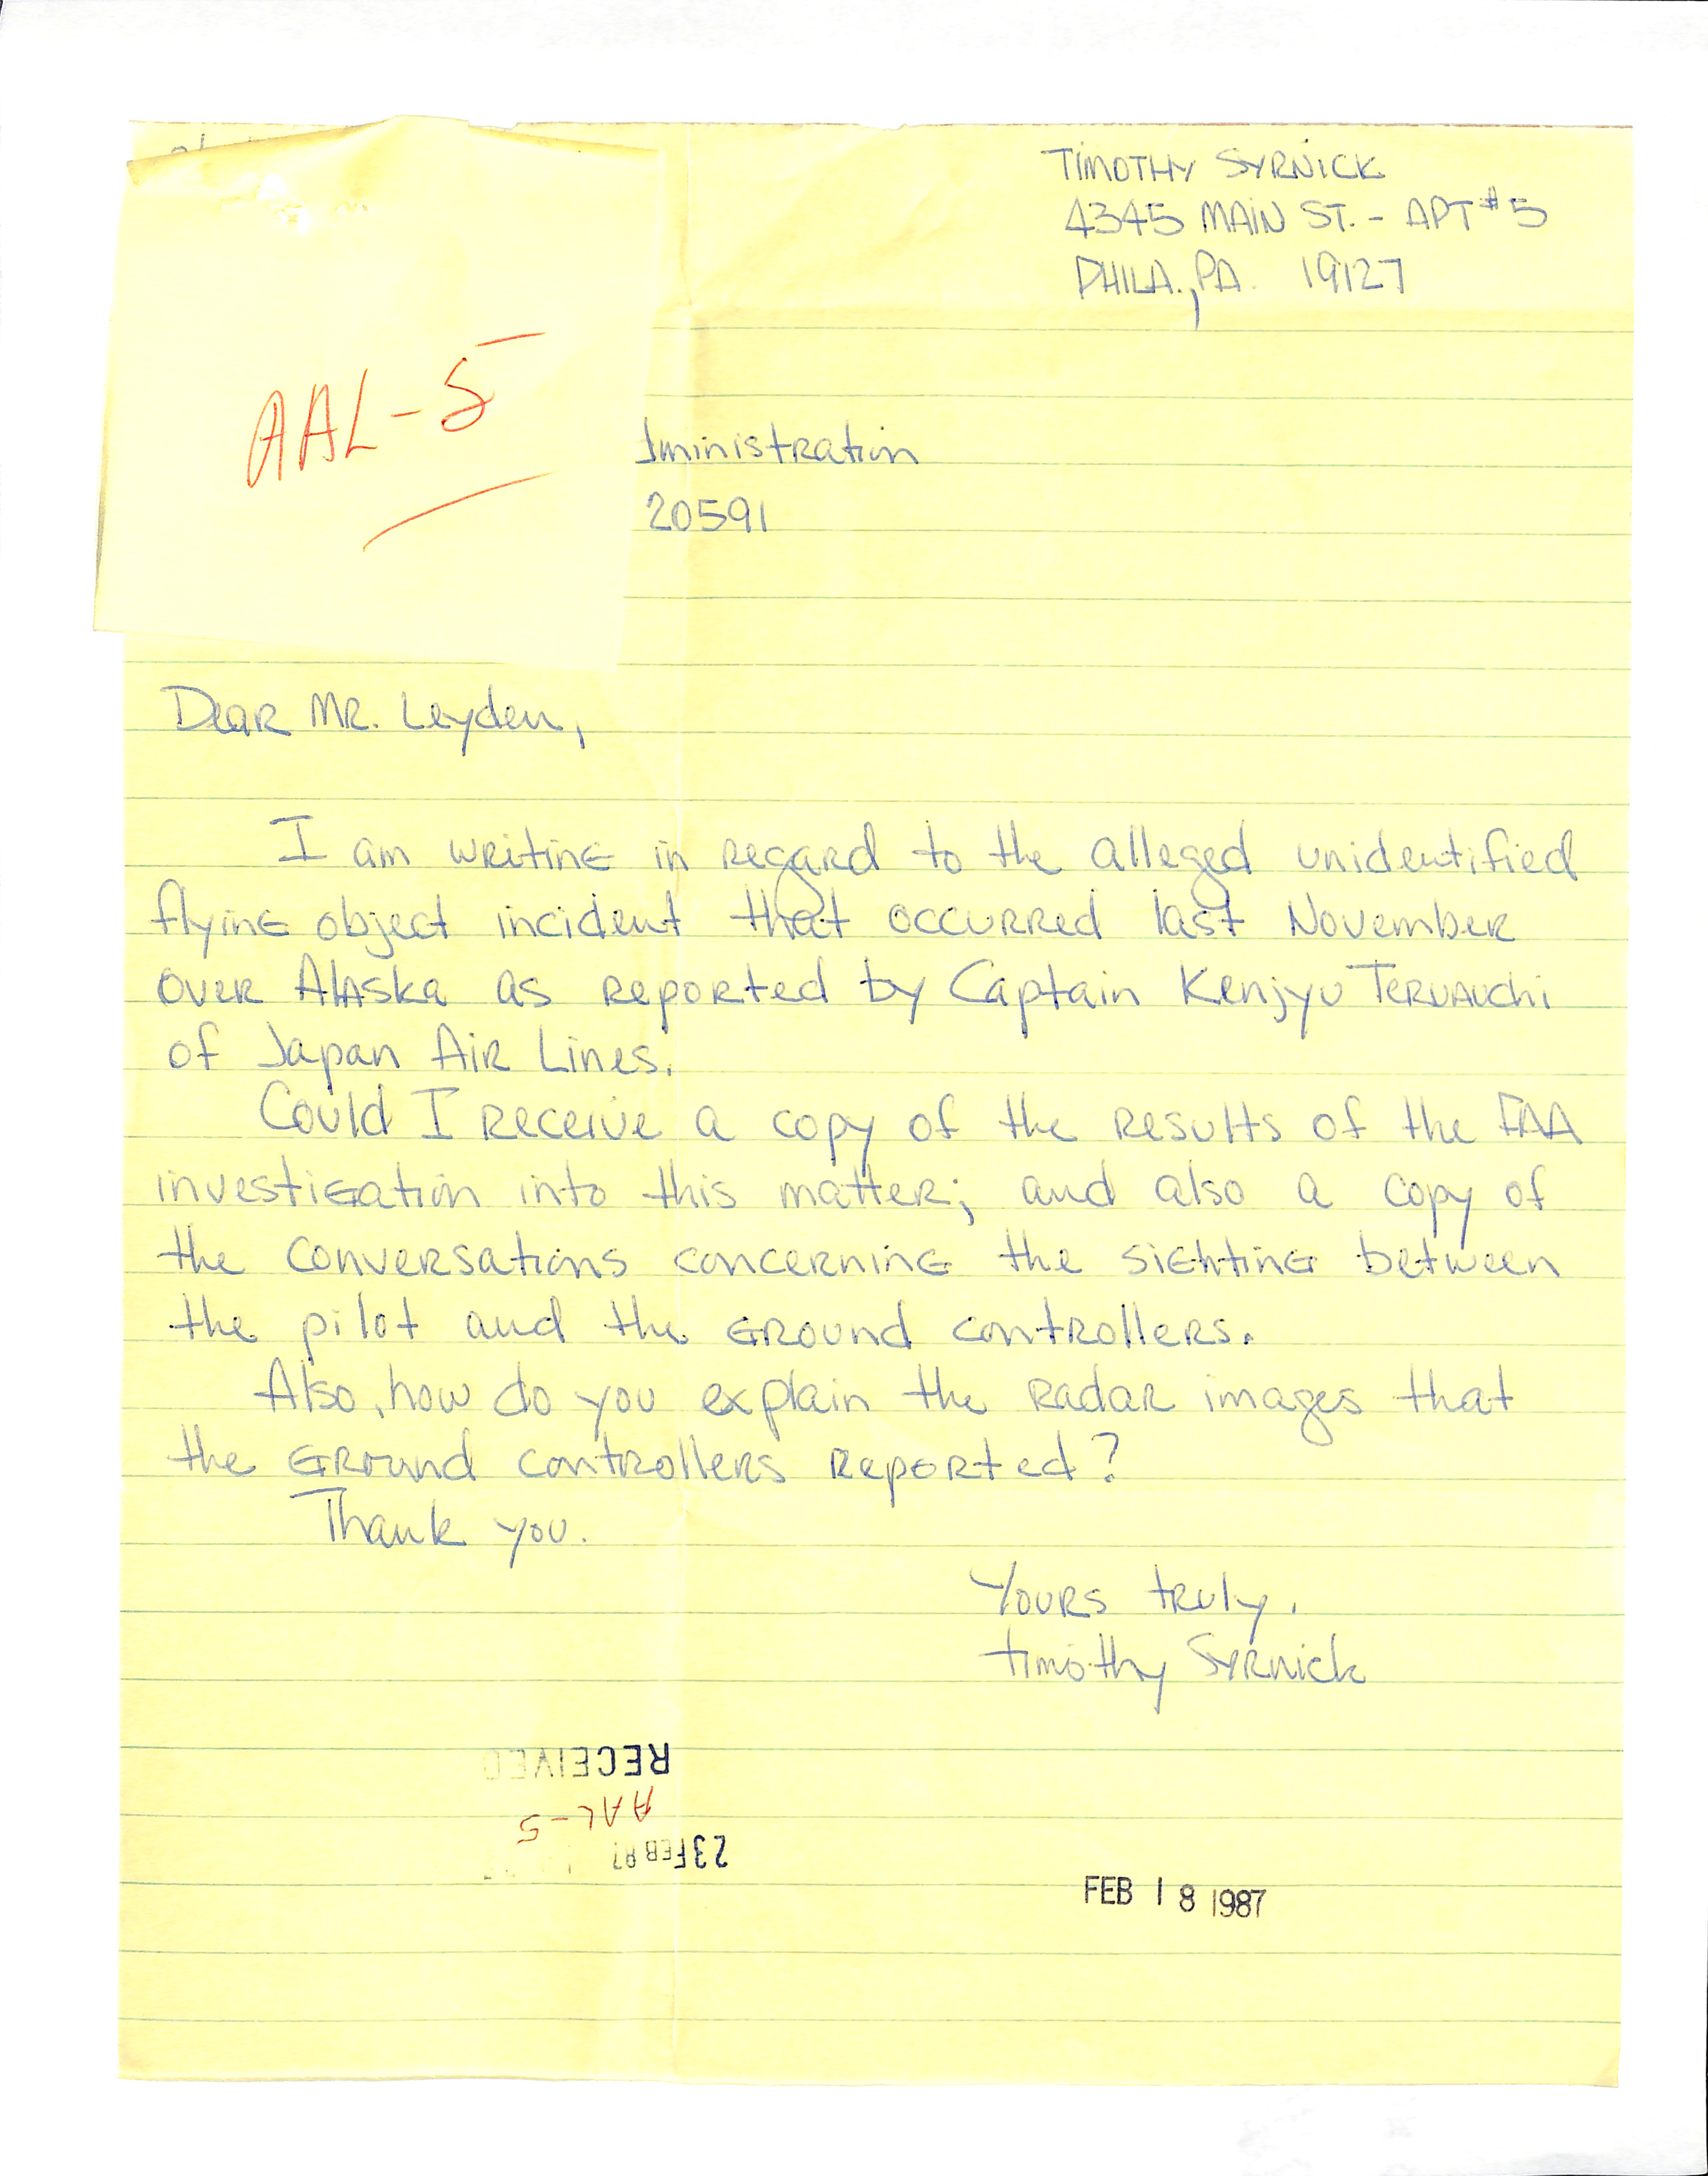 TIMOTHY SYRNICK
4345 MAIN ST. - APT #5
PHILA., PA. 19127
AAL-5
dministration
20591
Dear Mr. Leyden,
I am writing in regard to the alleged unidentified
flying object incident that occurred last November
over Alaska as reported by Captain Kenjyu Teruauchi
of Japan Air Lines.
Could I receive a copy of the results of the FAA
investigation into this matter; and also a copy of
the conversations concerning the sighting between
the pilot and the ground controllers.
Also, how do you explain the radar images that
the ground controllers reported?
Thank you.
Yours truly,
Timothy Syrnick
RECEIVED
AAL-5
23 FEB 87
FEB 18 1987